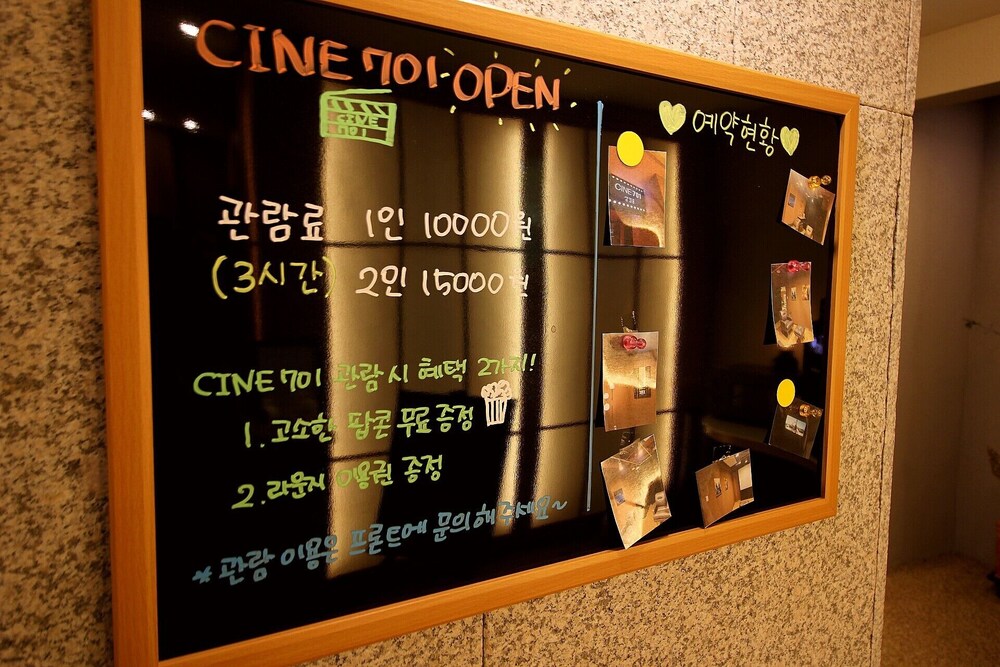 CINE 701 OPEN
CINE
701
관람료 1인 10000원
(3시간) 2인 15000원
CINE 701 관람 시 혜택 2가지!
1. 고소한 팝콘 무료 증정
2. 라운지 이용권 증정
* 관람 이용은 프론트에 문의해주세요~
예약현황
CINE 701